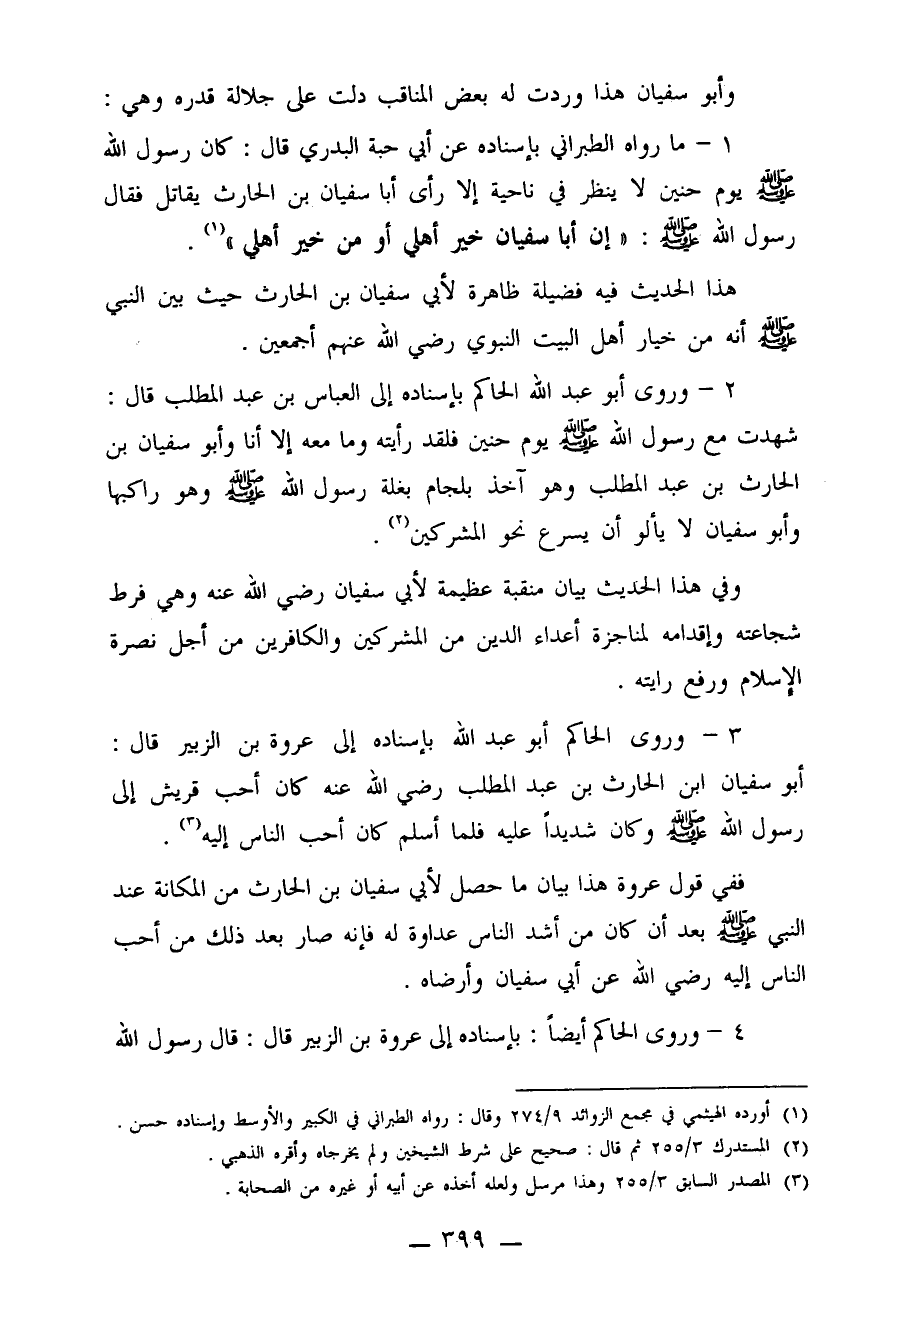 وأبو سفيان هذا وردت له بعض المناقب دلت على جلالة قدره وهي :
١ – ما رواه الطبراني بإسناده عن أبي حبة البدري قال : كان رسول الله
ﷺ يوم حنين لا ينظر في ناحية إلا رأى أبا سفيان بن الحارث يقاتل فقال
رسول الله ﷺ : « إن أبا سفيان خير أهلي أو من خير أهلي »(١) .
هذا الحديث فيه فضيلة ظاهرة لأبي سفيان بن الحارث حيث بين النبي
ﷺ أنه من خيار أهل البيت النبوي رضي الله عنهم أجمعين .
٢ – وروى أبو عبد الله الحاكم بإسناده إلى العباس بن عبد المطلب قال :
شهدت مع رسول الله ﷺ يوم حنين فلقد رأيته وما معه إلا أنا وأبو سفيان بن
الحارث بن عبد المطلب وهو آخذ بلجام بغلة رسول الله ﷺ وهو راكبها
وأبو سفيان لا يألو أن يسرع نحو المشركين(٢) .
وفي هذا الحديث بيان منقبة عظيمة لأبي سفيان رضي الله عنه وهي فرط
شجاعته وإقدامه لمناجزة أعداء الدين من المشركين والكافرين من أجل نصرة
الإسلام ورفع رايته .
٣ – وروى الحاكم أبو عبد الله بإسناده إلى عروة بن الزبير قال :
أبو سفيان ابن الحارث بن عبد المطلب رضي الله عنه كان أحب قريش إلى
رسول الله ﷺ وكان شديداً عليه فلما أسلم كان أحب الناس إليه(٣) .
ففي قول عروة هذا بيان ما حصل لأبي سفيان بن الحارث من المكانة عند
النبي ﷺ بعد أن كان من أشد الناس عداوة له فإنه صار بعد ذلك من أحب
الناس إليه رضي الله عن أبي سفيان وأرضاه .
٤ – وروى الحاكم أيضاً : بإسناده إلى عروة بن الزبير قال : قال رسول الله
(١) أورده الهيثمي في مجمع الزوائد ٢٧٤/٩ وقال : رواه الطبراني في الكبير والأوسط وإسناده حسن .
(٢) المستدرك ٢٥٥/٣ ثم قال : صحيح على شرط الشيخين ولم يخرجاه وأقره الذهبي .
(٣) المصدر السابق ٢٥٥/٣ وهذا مرسل ولعله أخذه عن أبيه أو غيره من الصحابة .
— ٣٩٩ —